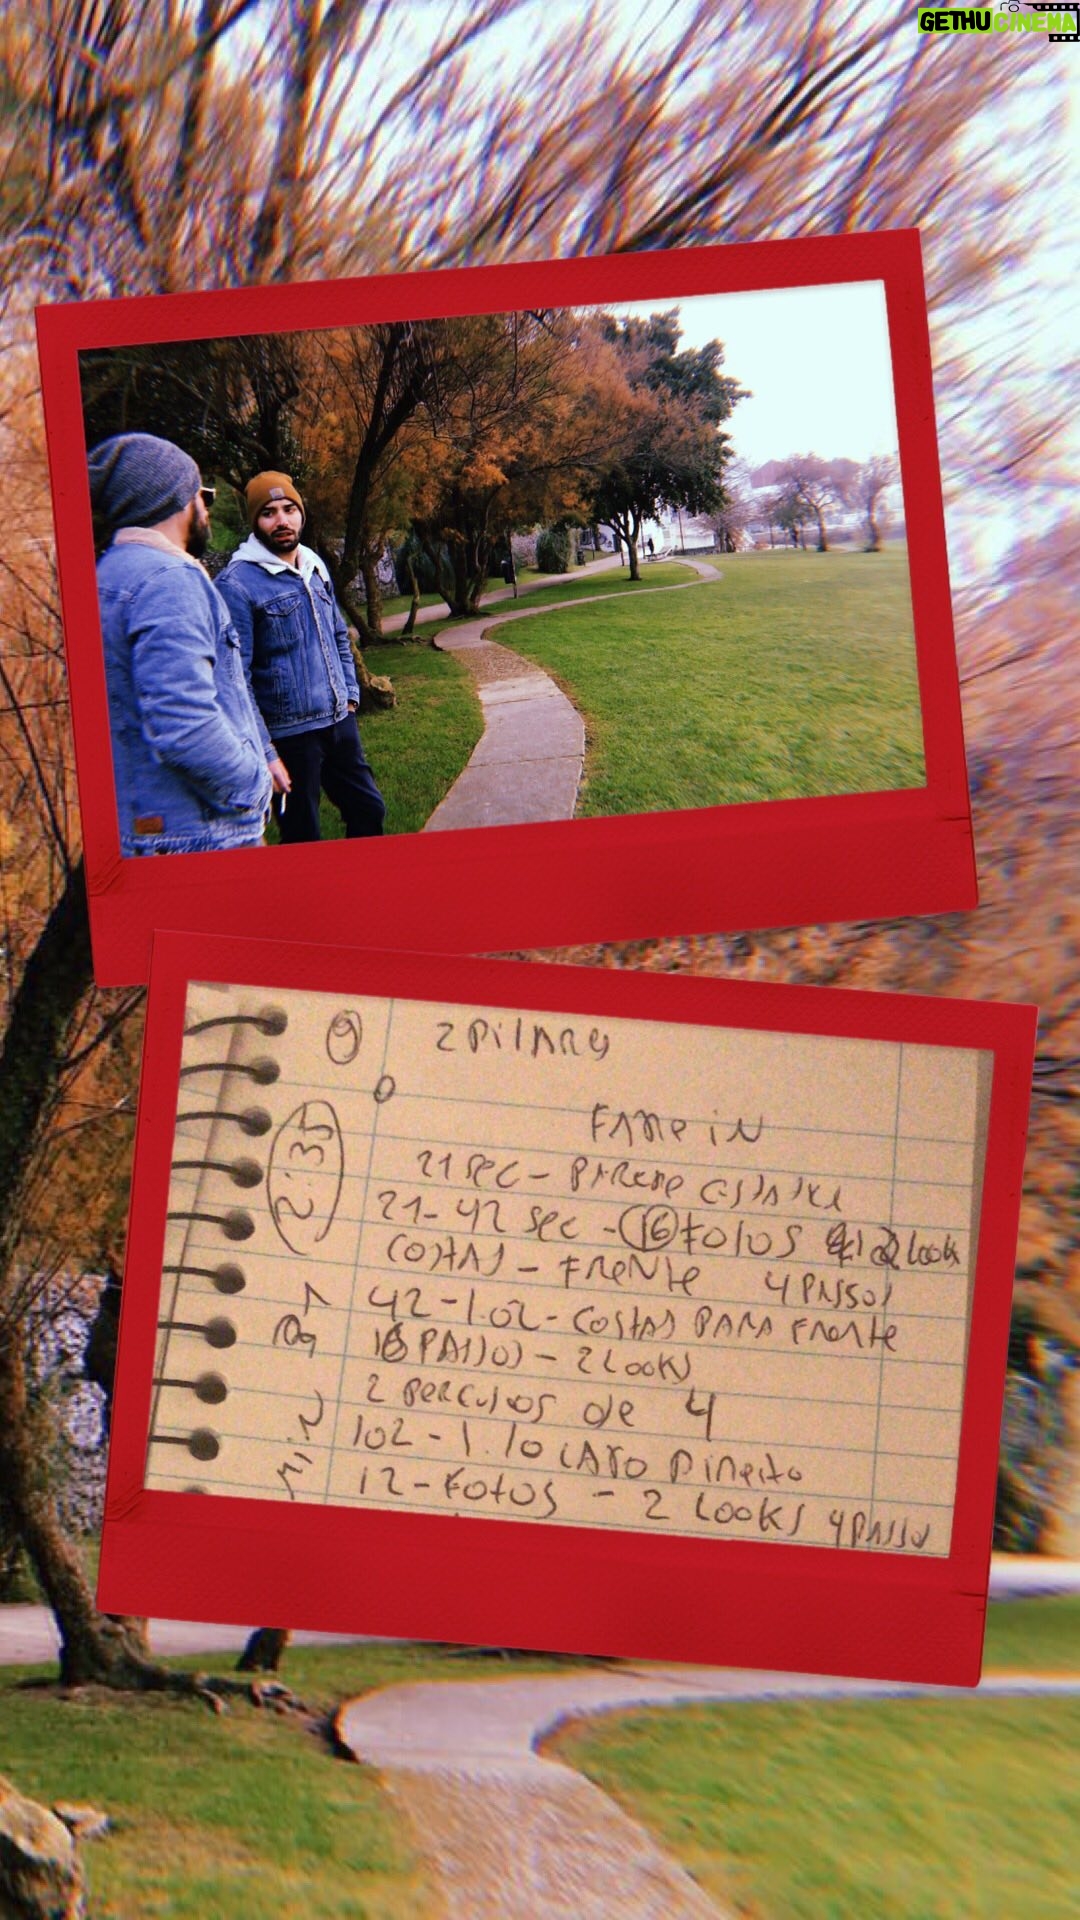 GETHU CINEMA
9 2 PilARES
0
2:35
FADE iN
21 SEC - PAREDE
21-42 SEC - 16 FOTOS 2 LOOK
COSTAS - FRENTE 4 PASSOS
42-1.02 - COSTAS PARA FRENTE
16 PASSOS - 2 LOOKS
2 de 4
102-1.10 LADO DiREito
12-FOTOS - 2 LOOKS 4 PASSOS